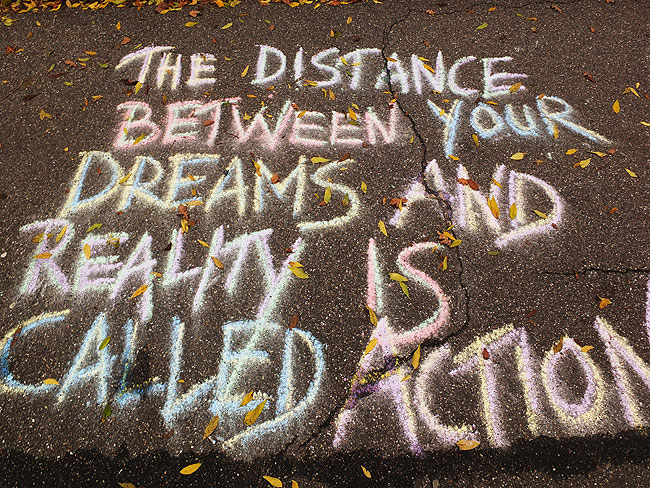 THE DISTANCE
BETWEEN YOUR
DREAMS AND
REALITY IS
CALLED ACTION